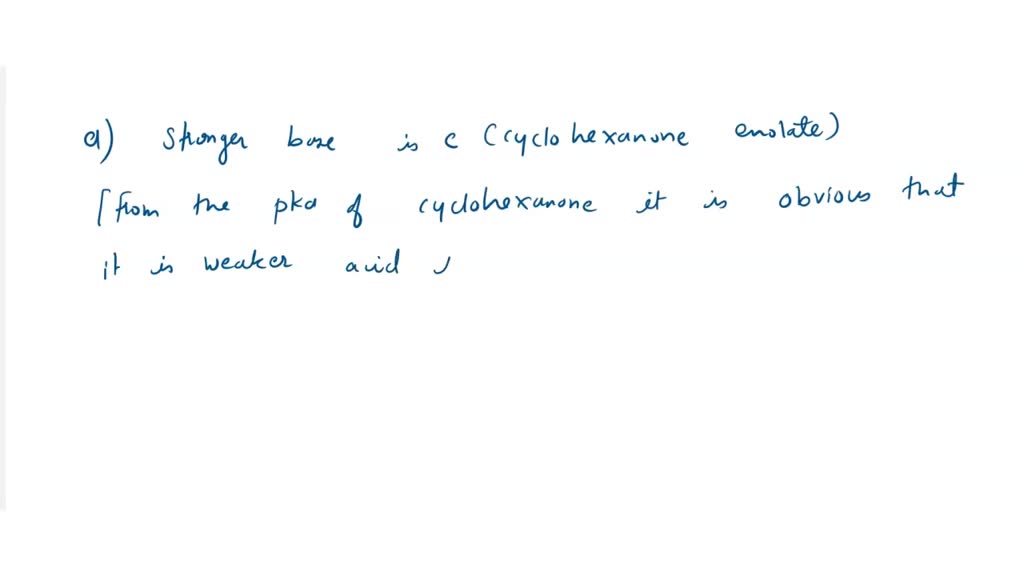 a) Stronger base is c (cyclohexanone enolate)
[from the pka of cyclohexanone it is obvious that
it is weaker acid